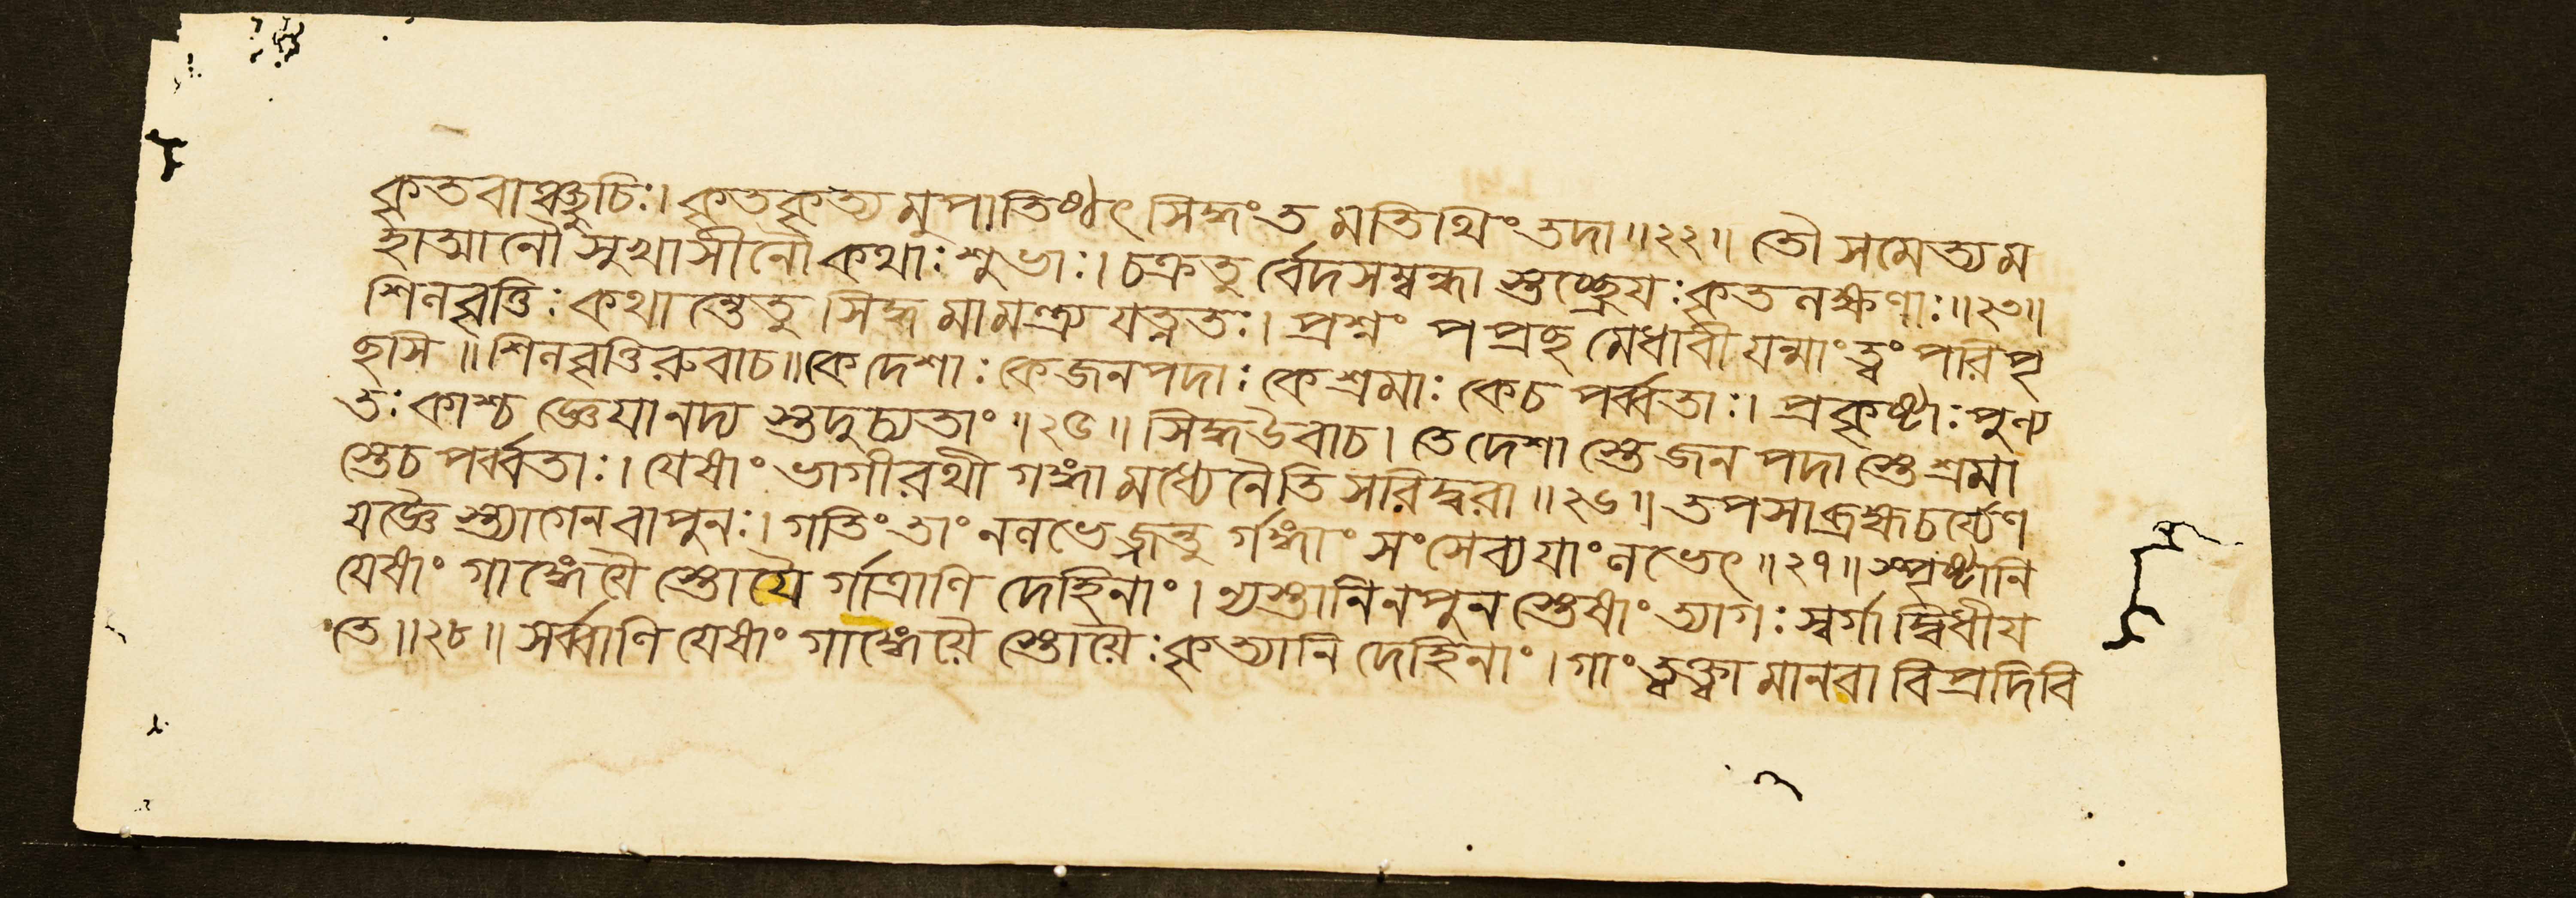 কৃতবাঞ্ছুচিঃ। কৃতকৃত্যমুপাতিষ্ঠৎ সিদ্ধংতমতিথিংতদা॥২২॥ তৌসমেত্যম
হাত্মানৌসুখাসীনৌকথাঃশুভাঃ। চক্রতুর্বেদসম্বদ্ধাস্তচ্ছেযঃকৃতনক্ষণাঃ॥২৩॥
শিনবৃত্তিঃকথান্তেতু সিদ্ধমামন্ত্র্যযত্নতঃ। প্রশ্নং পপ্রছমেধাবীযন্মাংত্বংপরিপৃ
ছসি॥শিনবৃত্তিরুবাচ॥কেদেশাঃকেজনপদাঃকেশ্রমাঃ কেচপর্ব্বতাঃ। প্রকৃষ্টাঃপুণ্য
তঃকাশ্চ জ্ঞেযানদ্যস্তদুচ্যতাং॥২৫॥ সিদ্ধউবাচ। তেদেশাস্তেজনপদাস্তেশ্রমা
স্তেচপর্ব্বতাঃ। যেষাং ভাগীরথী গঙ্গামধ্যেনৈতিসরিদ্বরা॥২৬॥ তপসাব্রহ্মচর্য্যেণ
যজ্ঞৈস্ত্যাগেনবাপুনঃ। গতিংতাং ননভেজ্জন্তুর্গঙ্গাং সংসেব্যযাংনভেৎ॥২৭॥ স্পৃষ্টানি
যেষাং গাঙ্গেযৈস্তোযৈর্গাত্রাণি দেহিনাং। ন্যস্তানিনপুনস্তেষাং ত্যাগঃস্বর্গাদ্বিধীয
তে॥২৮॥ সর্ব্বাণি যেষাং গাঙ্গেযৈস্তোযৈঃকৃত্যানি দেহিনাং। গাংত্যক্ত্বামানবাবিপ্রদিবি